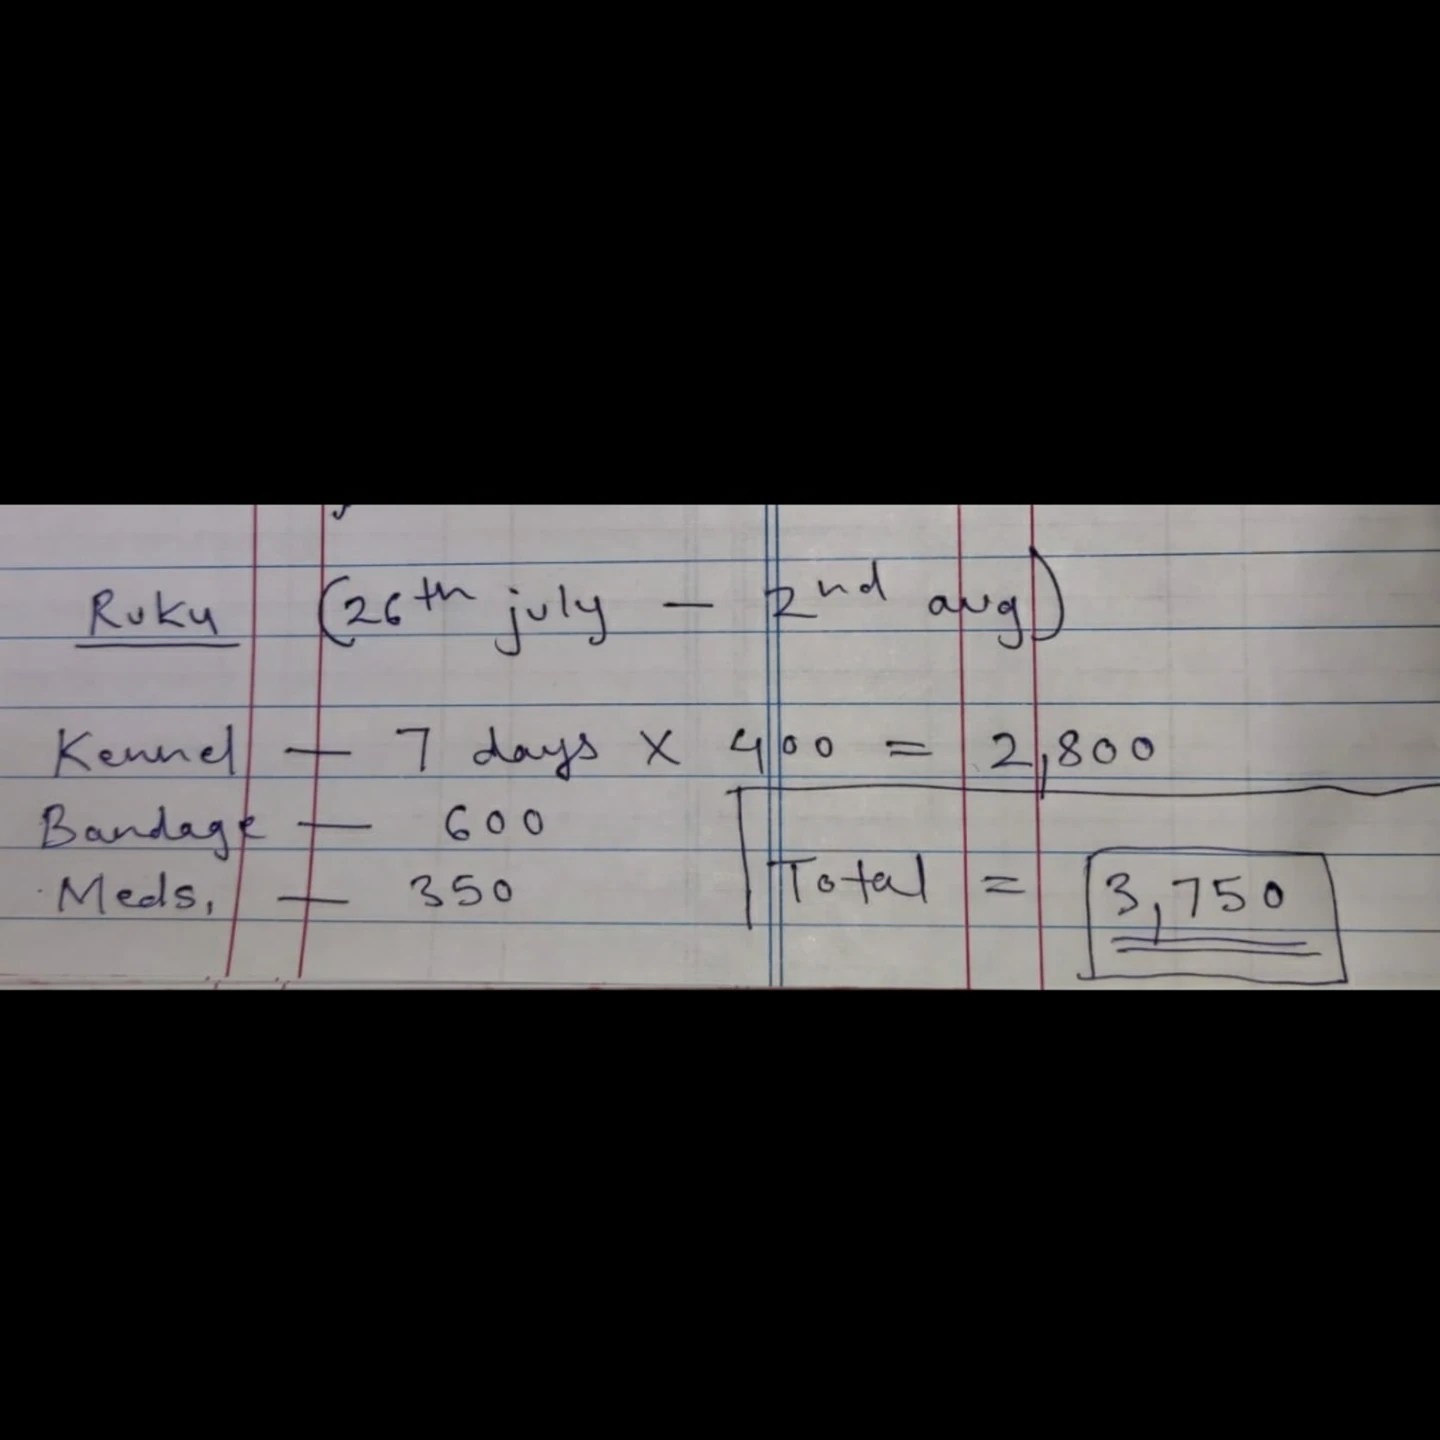 Ruku (26th july — 2nd aug)
Kennel — 7 days x 400 = 2,800
Bandage — 600
Meds, — 350
Total = 3,750